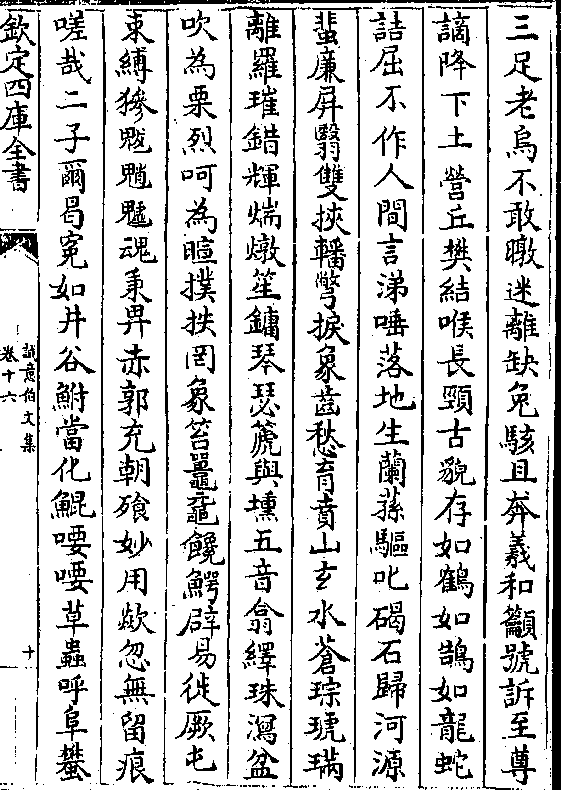 三足老烏不敢暾迷離缺兔駭且奔羲和籲號訴至尊
謫降下土營丘樊結喉長頸古貌存如鶴如鵠如龍蛇
詰屈不作人間言涕唾落地生蘭蓀驅叱碣石歸河源
蜚廉屏翳雙挾轓彎捩象齒愁育賁山玄水蒼琮琥璊
離羅璀錯輝煓燉笙鏞琴瑟箎與壎五音翕繹珠瀉盆
吹為栗烈呵為暄撲抶罔象笞鼉黿饞鰐辟易徙厥屯
束縛獝魃魈魖魂秉畀赤郭充朝飱妙用欻忽無留痕
嗟哉二子爾曷冤如井谷鮒當化鯤喓喓草蟲呼阜螽
欽定四庫全書
誠意伯文集
卷十六
十